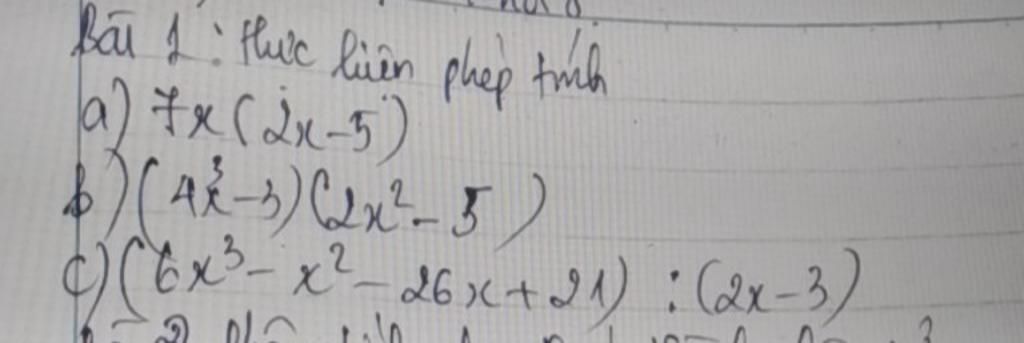 Bài 1: thực hiện phép tính
a) 7x(2x-5)
b) (4x³-3)(2x²-5)
c) (6x³-x²-26x+21) : (2x-3)